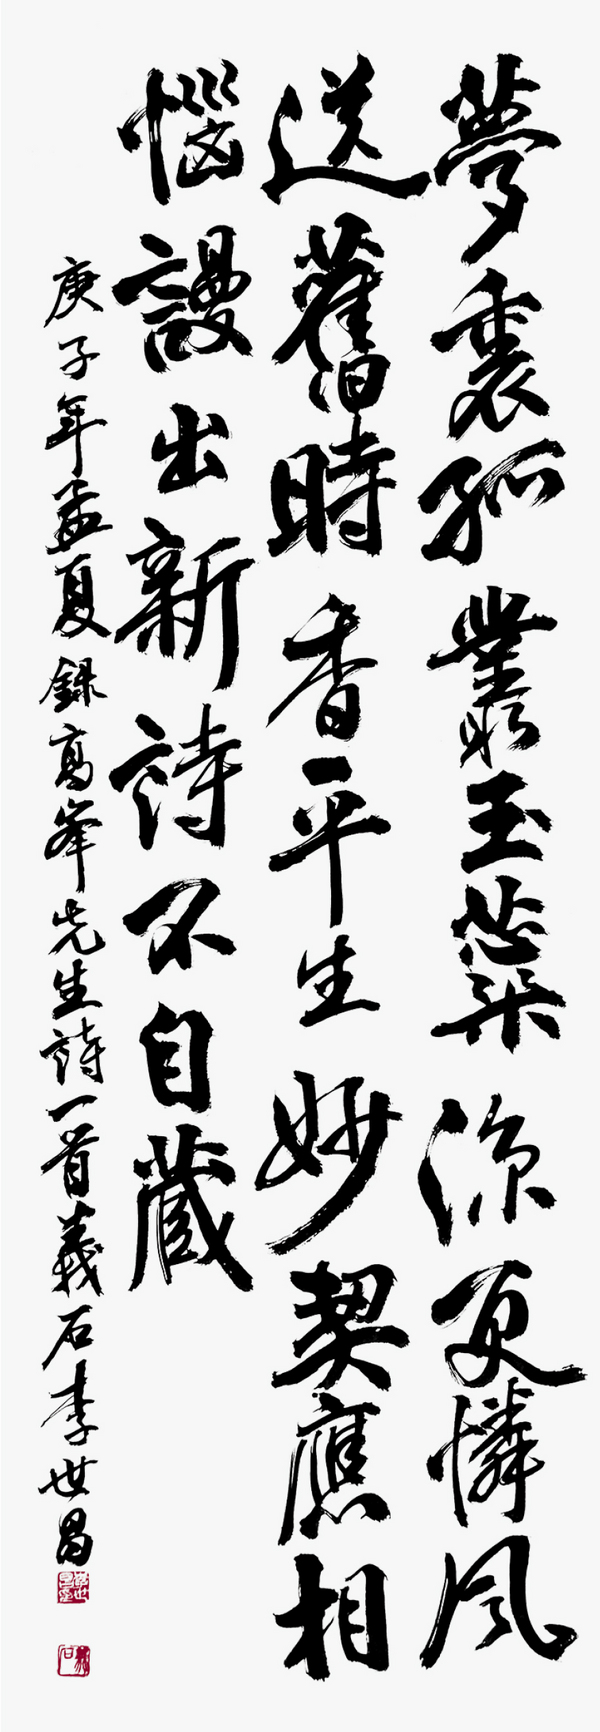 夢裏孤叢玉蘂涼更憐風
送舊時香平生妙契應相
惱謾出新詩不自藏
庚子年孟夏録高峯先生詩一首義石李世昌
義石